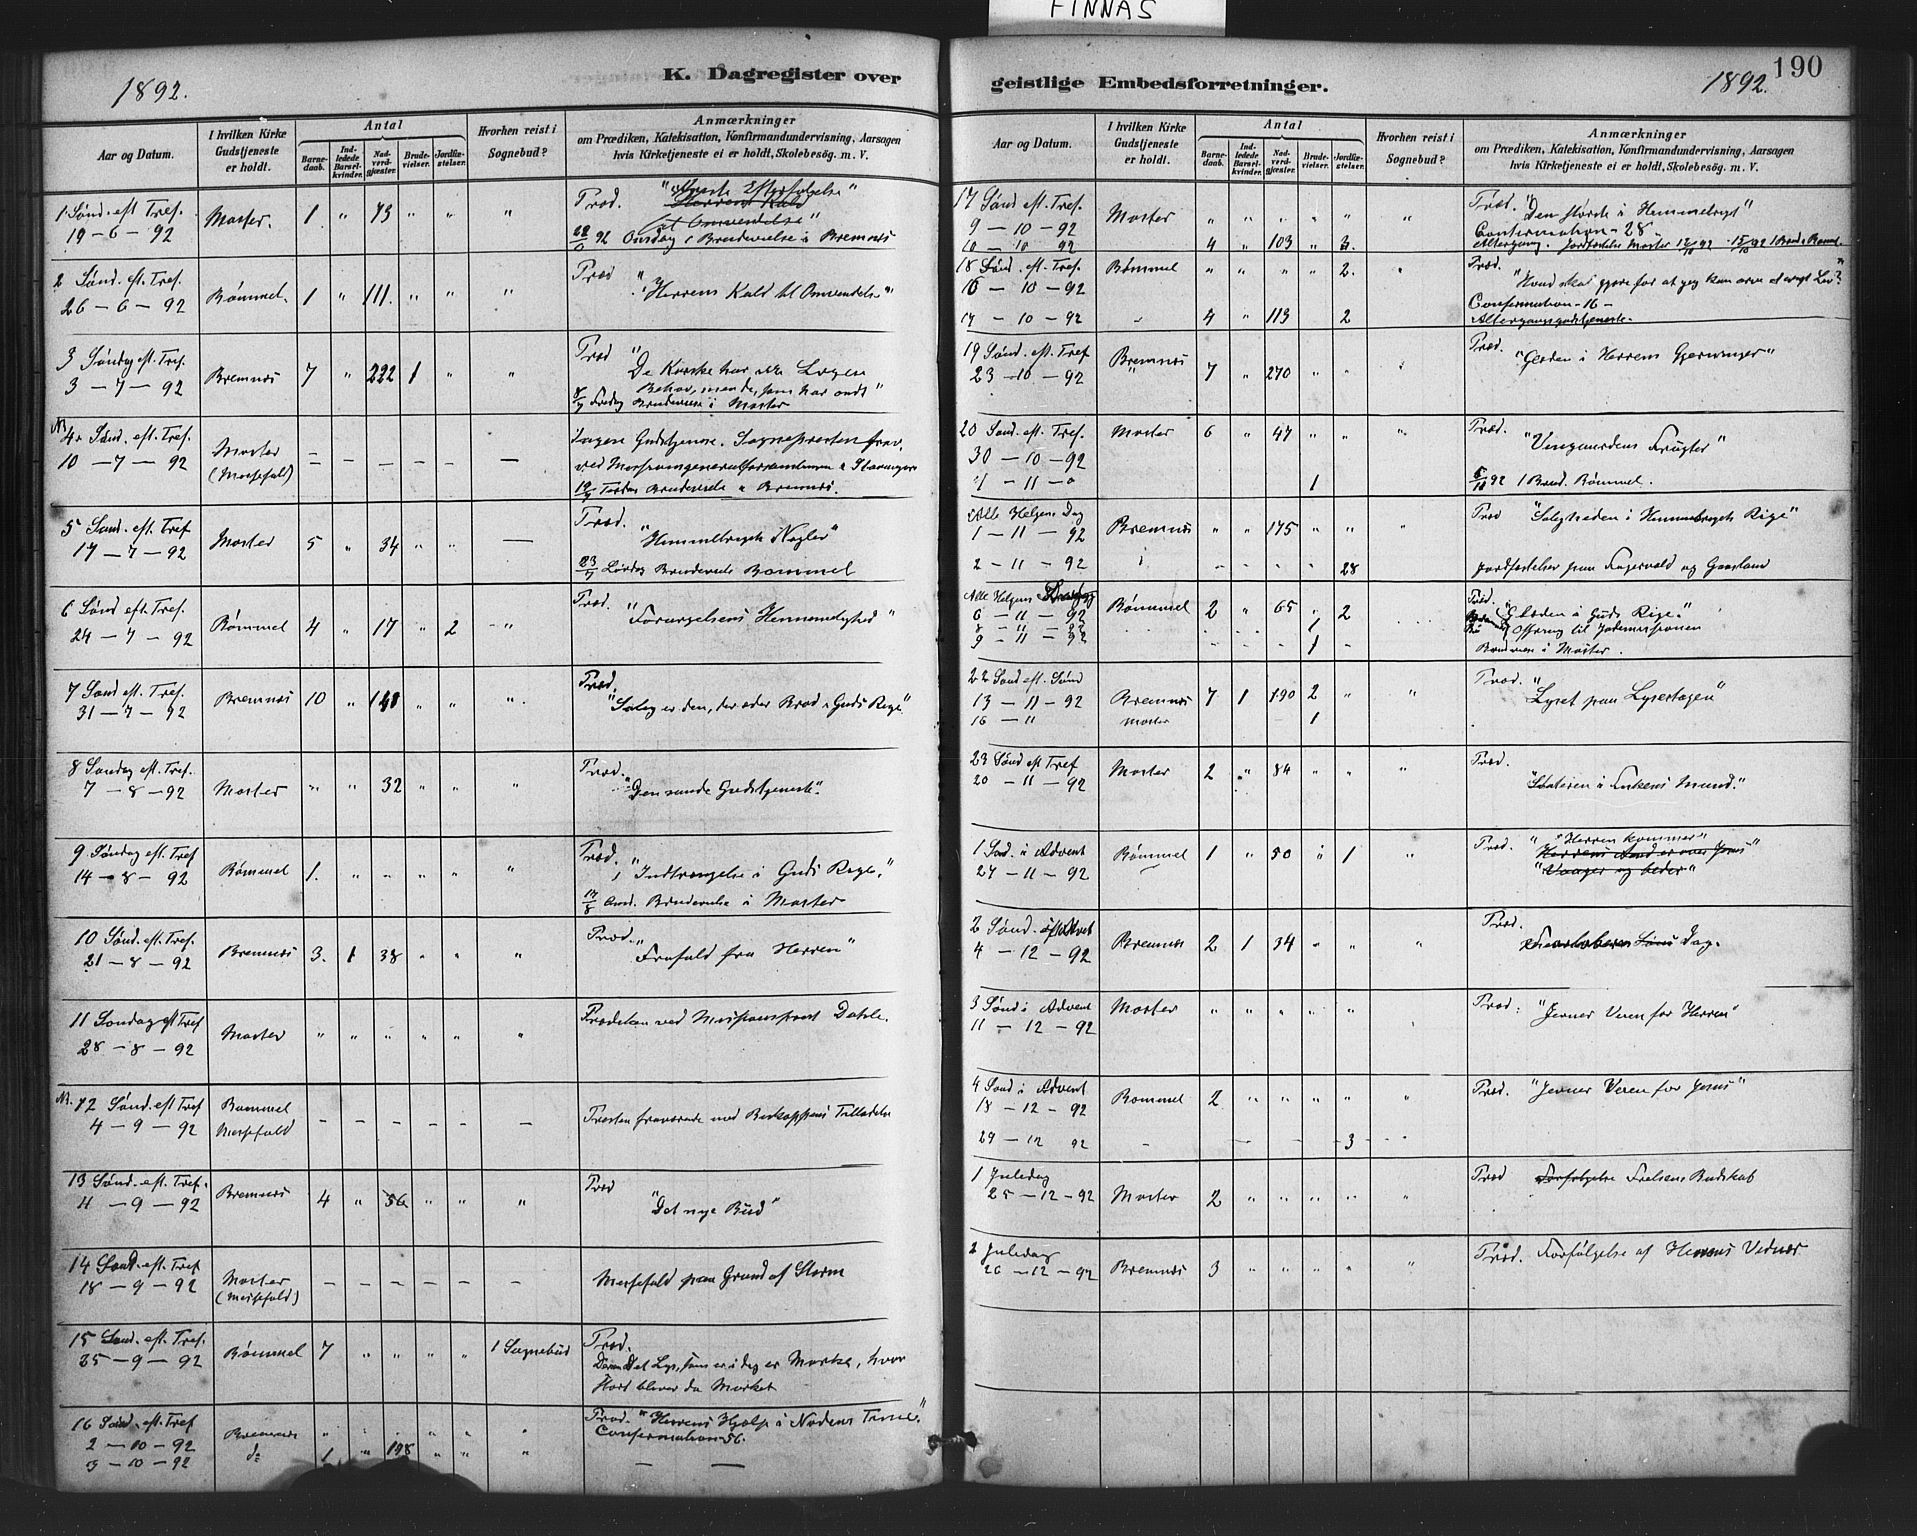 FINNÅS
1892.
K. Dagregister over
geistlige Embedsforretninger.
1892.
190
Aar og Datum.
I hvilken Kirke
Gudstjeneste
er holdt.
Antal
Barne-
daab.
Ind-
ledede
Barsel-
kvinder.
Nad-
verd-
gjæster.
Brude-
vielser.
Jordfæ-
stelser.
Hvorhen reist i
Sognebud?
Anmærkninger
om Prædiken, Katekisation, Konfirmandundervisning, Aarsagen
hvis Kirketjeneste ei er holdt, Skolebesøg. m. V.
1 Sønd. eft Tref.
19 – 6 – 92
Moster. 1 " 73 " " "
Præd.
22/6 92 Onsdag 1 Brudevielse i Bremnæs
2 Sønd. eft Tref.
26 – 6 – 92
Bømmel. 1 " 111. " " "
Præd "Herrens Kald til Omvendelse"
3 Søndag eft. Tref.
3 – 7 – 92
Bremnæs 7 " 222 1 " "
Præd "De Karske har ikke Lægen
Behov, men de, som har ondt"
8/7 Fredag Brudevielse i Moster
4. Sønd. eft. Tref.
10 – 7 – 92
Moster
(Messefald)
– – – – – –
Ingen Gudstjeneste. Sognepresten frav.
ved Missionsgeneralforsamlingen i Stavanger
Brudevielse i Bremnæs.
5 Sønd. eft. Tref
17 – 7 – 92
Moster 5 " 34 " " —
Præd.
"Himmelrigets Nøgler"
23/7 Lørdag Brudevielse Bømmel
6 Sønd eft. Tref.
24 – 7 – 92
Bømmel 4 " 17 " 2 – "
Præd. "Forargelsens Hemmelighed"
7 Sønd eft. Tref.
31 – 7 – 92
Bremnæs 10 " 141 " " "
Præd.
"Salig er den, der æder Brød i Guds Rige"
8 Søndag eft. Tref.
7 – 8 – 92
Moster " " 32 " " "
Præd.
"Den sande Gudstjeneste".
9 Søndag eft. Tref
14 – 8 – 92
Bømmel 1. " " " " "
Præd. "Indtrængelse i Guds Rige"
17/8 Onsd. Brudevielse i Moster
10 Sønd. eft. Tref.
21 – 8 – 92
Bremnæs 3. 1 38 " " "
Præd. "Frafald fra Herren"
11 Søndag eft Tref
28 – 8 – 92
Moster " " " " " "
Prædiken ved Missionsprest Dahle.
12 Sønd. eft Tref
4 – 9 – 92
Bømmel
Messefald
– – – – – –
Presten fraværende med Biskoppens Tilladelse
13 Sønd. eft. Tref.
11 – 9 – 92
Bremnæs 4 " 56 " " "
Præd
"Det nye Bud"
14 Sønd. eft. Tref
18 – 9 – 92
Moster
(Messefald)
– – – – – –
Messefald paa Grund af Storm
15 Sønd. eft. Tref.
25 – 9 – 92
Bømmel 7 " " " " 1 Sognebud
Præd.
Det Lys, som er i dig er Mørke, hvor
stort bliver da Mørket
16 Sønd. eft. Tref
2 – 10 – 92
3 – 10 – 92
Bremnæs
do
1 " 198 " " "
Præd. "Herrens Hjælp i Nødens Time"
Confirmation 56.
Aar og Datum.
I hvilken Kirke
Gudstjeneste
er holdt.
Antal
Barne-
daab.
Ind-
ledede
Barsel-
kvinder.
Nad-
verd-
gjæster.
Brude-
vielser.
Jordfæ-
stelser.
Hvorhen reist i
Sognebud?
Anmærkninger
om Prædiken, Katekisation, Konfirmandundervisning, Aarsagen
hvis Kirketjeneste ei er holdt, Skolebesøg. m. V.
17 Sønd eft. Tref.
9 – 10 – 92
10 – 10 92
Moster " " " " " "
4 " 103 " 3.
Præd. "Den største i Himmelrige"
Confirmation – 28
Altergang. Jordfæstelse Moster
18 Sønd. eft. Tref.
16 – 10 – 92
17 – 10 – 92
Bømmel " " " " 2. "
4 " 113 2
Præd.
"Hvad skal gjøre for at jeg kan arve et evigt Liv?"
Confirmation – 16 –
Altergangsgudstjeneste.
19 Sønd. eft. Tref
23 – 10 – 92
Bremnæs 7 " 270 " " "
Præd.
"Glæden i Herrens Gjerninger"
20 Sønd. eft. Tref.
30 – 10 – 92
Moster 6 " 47 " " "
1
Præd.
"Vingaardens Frugter"
92 1 Brud. Bømmel.
Alle Helgens Dag
1 – 11 – 92
2 – 11 – 92
Bremnæs " " 175 " " "
28
Præd "Saligheden i Himmelrigets Rige"
Jordfæstelser paa Fagervold og
Alle Helgens
6 – 11 – 92
8 – 11 – 92
9 – 11 – 92
Bømmel 2 " 65 " 2
1
1
Præd.
"Glæden i Guds Rige."
Offring til Jødemissionen
i Moster.
22 Sønd eft.
13 – 11 – 92
16 – 11
Bremnæs 7 1 190 2 " "
Moster 1
Præd. "Lyset paa Lysestagen"
23 Sønd eft Tref
20 – 11 – 92
Moster 2 " 84 " " "
Præd.
"Stateren i Fiskens Mund."
1 Sønd. i Advent
27 – 11 – 92
Bømmel 1 " 50 " 1 "
Præd. "Herren kommer"
"Vaager og beder"
2 Sønd. Advent
4 – 12 – 92
Bremnæs 2 1 34 " " "
Præd.
Dag.
3 Sønd i Advent
11 – 12 – 92
Moster " " " " "
Præd: "Jevner Veien for Herren"
4 Sønd i Advent
18 – 12 – 92
29 – 12 92
Bømmel 2 " " " " "
3
Præd. "Jevner Veien for Jesus"
1 Juledag
25 – 12 – 92
Moster 2 " " " " "
Præd Forfølgelse Frelsens Budskab
2 Juledag
26 – 12 – 92
Bremnæs 3 " " " " "
Præd. Forfølgelse af Herrens Vidner